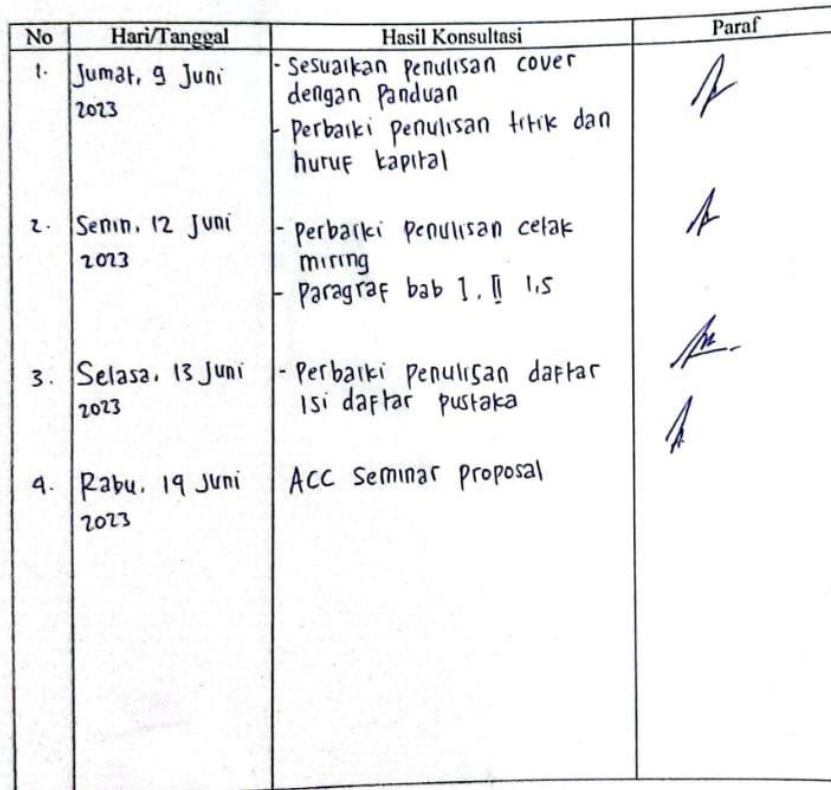 No Hari/Tanggal Hasil Konsultasi Paraf
1. Jumat, 9 Juni - Sesuaikan Penulisan cover
2023 dengan Panduan
- Perbaiki penulisan titik dan
huruf kapital
2. Senin, 12 Juni - Perbaiki Penulisan cetak
2023 miring
- Paragraf bab I, II 1,5
3. Selasa, 13 Juni - Perbaiki Penulisan daftar
2023 isi daftar pustaka
4. Rabu, 14 Juni ACC Seminar Proposal
2023